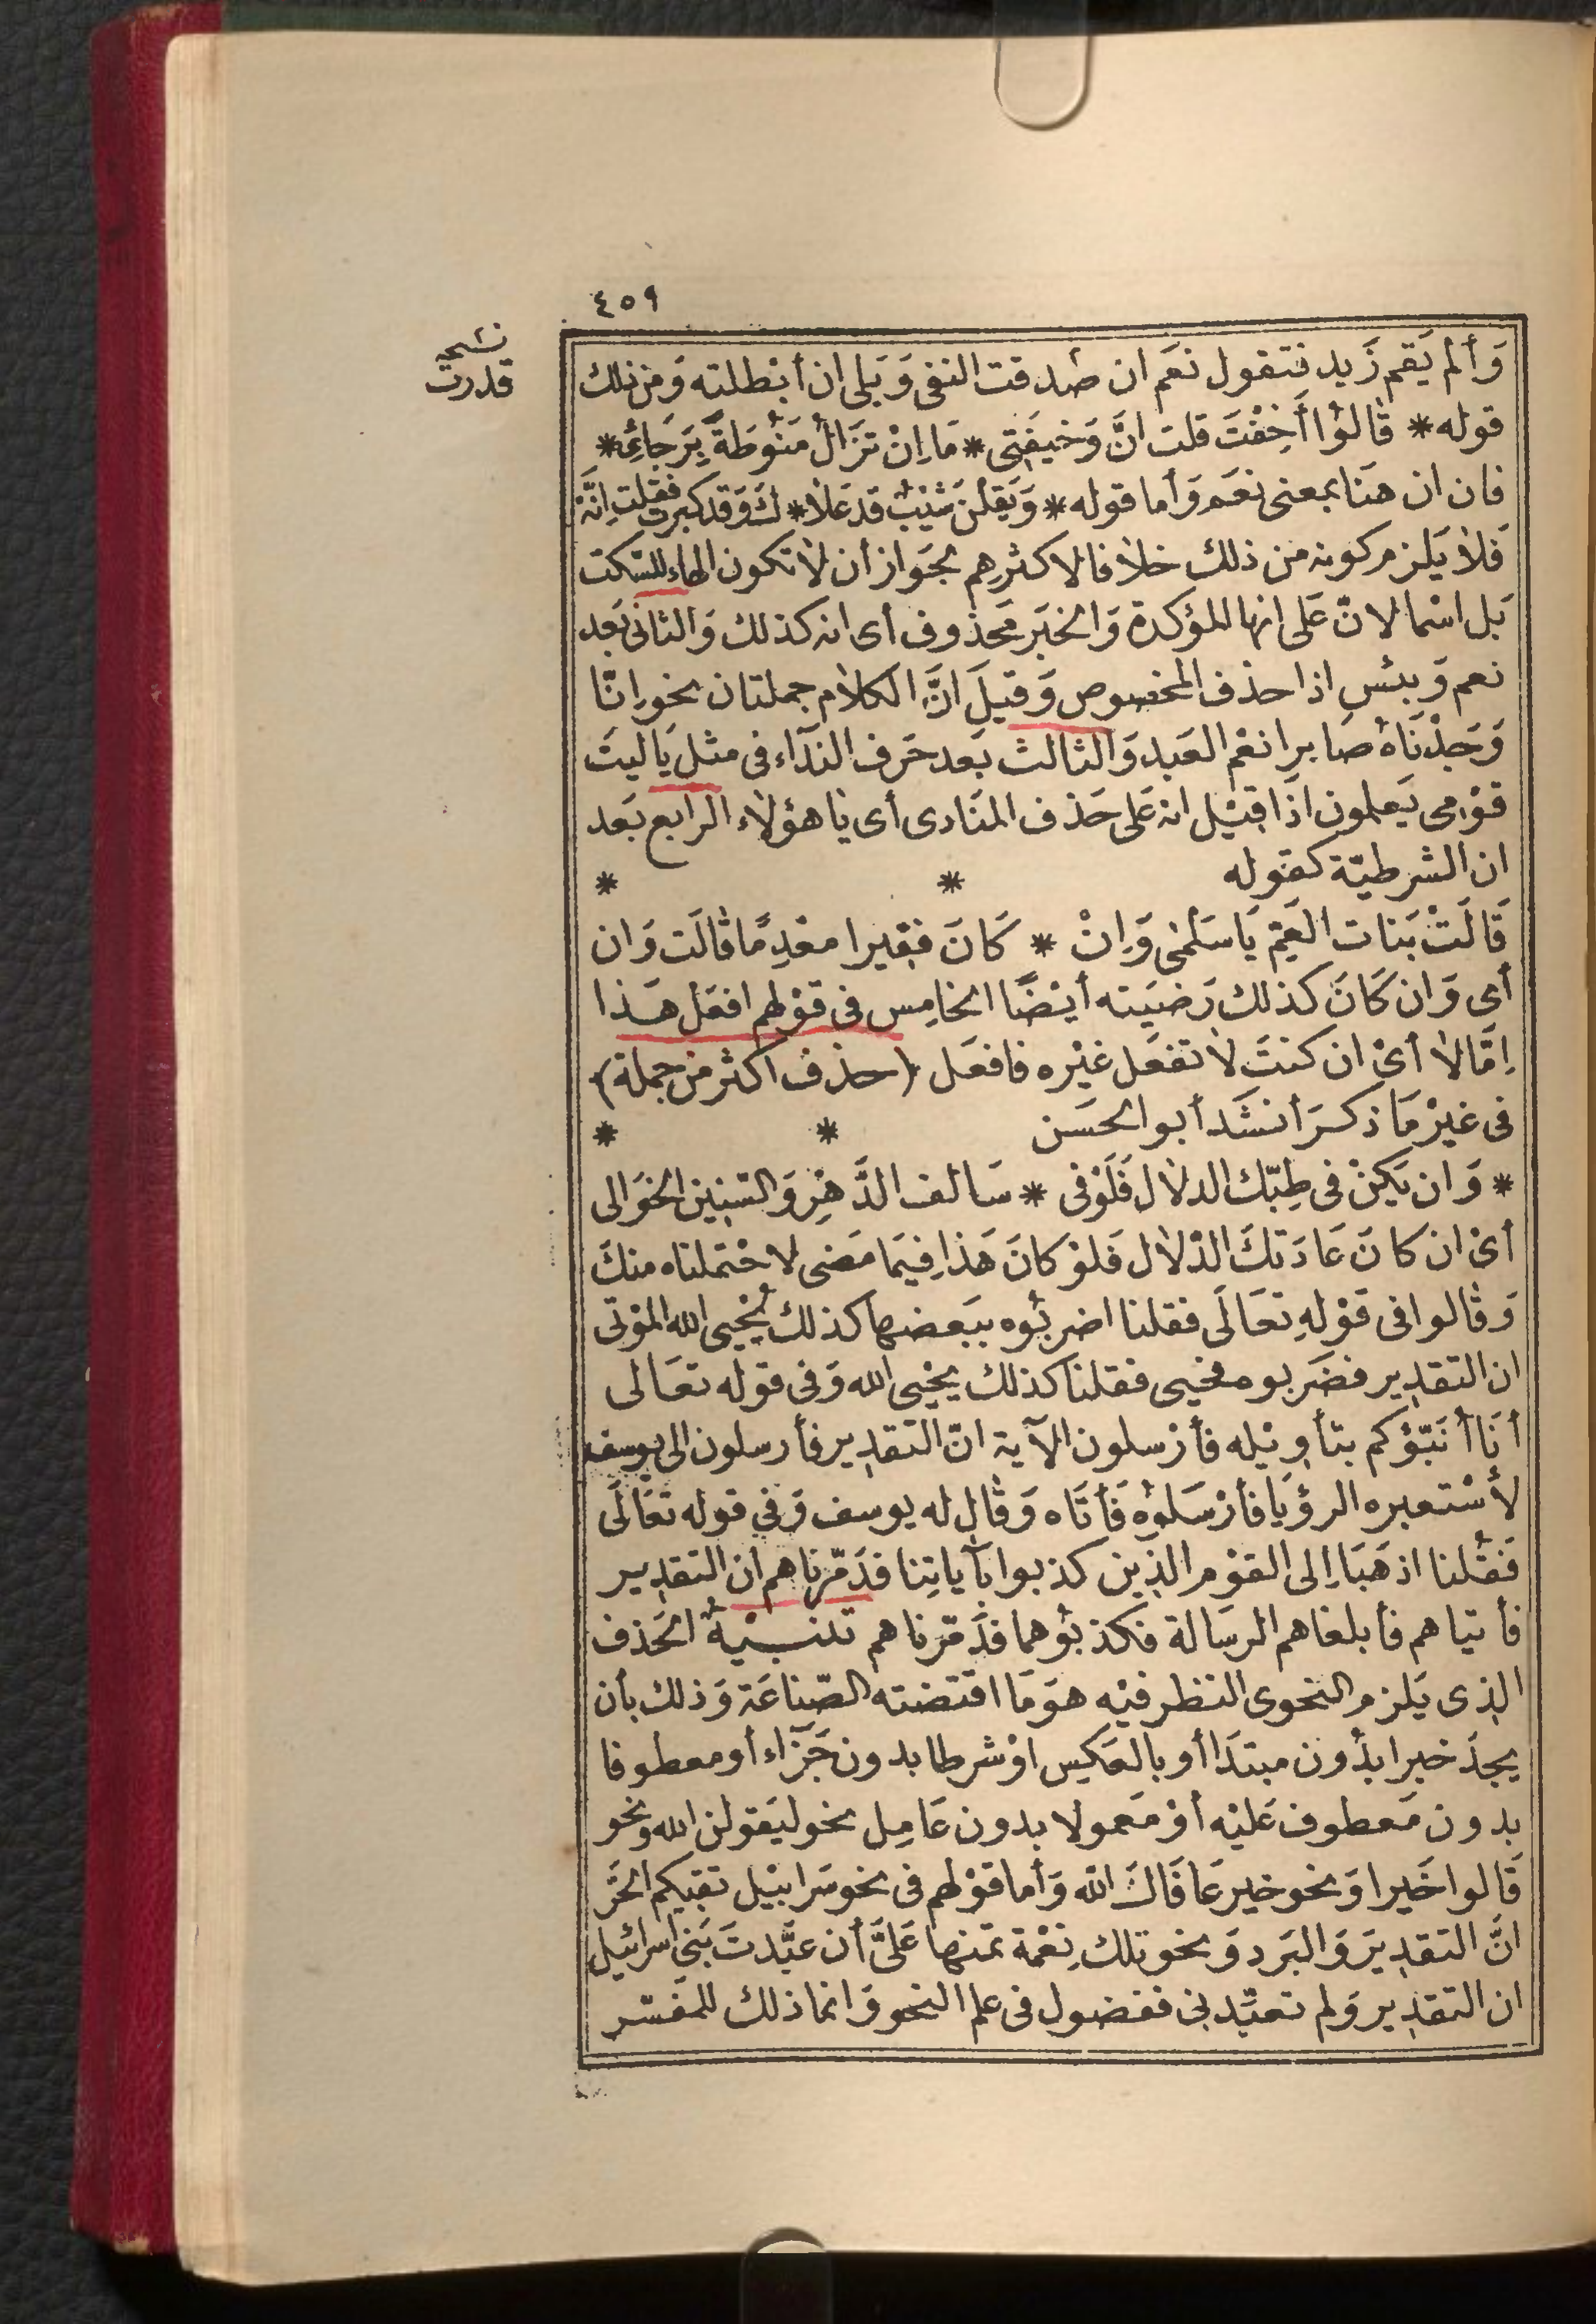 ٤٥٩
نسخة
قدرت
وَألم يَقم زَيد فتقول نعَم ان صَدقت النفى وَبَلى ان أبْطلته وَمن ذلك
قوله * قالوُا أَخِفْتَ قلت انَّ وَخيفَتِى * مَا اِنْ تزَالُ مَنوُطَةً بِرَجَائِى *
فان ان هنَا بمعنى نعَم وَأما قوله * وَيَقلْنَ شَيْبٌ قد عَلاَ * كَ وَقد كبرت فقلت اِنَّهْ
فَلاَ يَلزم كونه من ذلك خلاَفا لاكثرهم بجَواز أن لاَ تكون الهاء للسّكت
بَل اسْما لانّ عَلى انها المؤكدة وَالخبَر محَذوف أى انه كذلك وَالثانى بَعد
نعم وَبئس اذا حذف المخصوص وَقيلَ انَّ الكلاَم جملتان نحو اِنّا
وَجَدْنَاهُ صَابرا نعْم العَبد وَالثالث بَعد حَرف الندَآء فى مثل يَا ليتَ
قوْمى يَعلمون اذَا قيْل انه عَلى حَذف المنَادى أى يَا هؤلاَء الرابع بَعد
ان الشرطيّة كقوله * *
قَالَتْ بَنات العَمِّ يَا سَلْمٰى وَاِنْ * كَانَ فقيرا معْدِمًا قالَت وَان
أى وَان كَانَ كذلك رَضيَته أيْضًا الخامِس فى قوْلهم افعَل هَذا
اِمّا لاَ أىْ ان كنتَ لاَ تفعَل غيْره فافعَل (حذف اكثر من جملة)
فى غيْر مَا ذكرَ أنشَد أبو الحسَن * *
* وَان يَكنْ فى طِبّك الدلاَل فَلَوْ فى * سَالف الدَّهْرِ وَالسّنِين الخوَالى
أىْ ان كانَ عَادَتكَ الدّلاَل فَلوْ كانَ هَذا فِيمَا مَضى لاحْتملناه منكَ
وَقالوا فى قوْلهِ تعَالَى فقلنا اضربُوه ببَعضها كذلك يُحْيى الله الموْتى
ان التقدير فضَربوه فحيى فقلنا كذلك يحْيى الله وَفى قوله تعَالى
أنَا أنَبّؤكم بتأويْله فأرْسلون الآية انّ التقدير فأرسلون الى يوسف
لأسْتعبره الرؤيَا فأرْسَلوُه فَأتَاه وَقال له يوسف وَفي قوله تعَالَى
فَقُلنا اذهَبَا اِلى القوْم الذين كذبوا بآيَاتِنا فدَمّرناهم ان التقدير
فأتياهم فأبلغاهم الرسَالة فكذبوُهما فدَمّرناهم تنبيْهٌ الحَذف
الذى يَلزم النحوى النظر فيْه هوَ مَا اقتضته الصّناعَة وَذلك بأن
يجدَ خبرا بدُون مبتدَا أو بالعَكس اوْ شرطا بدون جَزَاء أو معطوفا
بدون مَعطوف عَليْه أوْ مَعمولا بدون عَامِل نحو ليَقولن الله وَنحو
قَالوا خَيرا وَنحو خير عَافَاكَ الله وَأما قوْلهم فى نحو سَرابيْل تقيكم الحَرّ
انَّ التقديرَ وَالبَرد وَنحو تلك نِعْمة تمنها عَلىَّ أن عبَّدتَ بَنى اسرائيل
ان التقدير وَلم تعبّدنى ففضول فى علم النحو وَانما ذلك للمفسّر